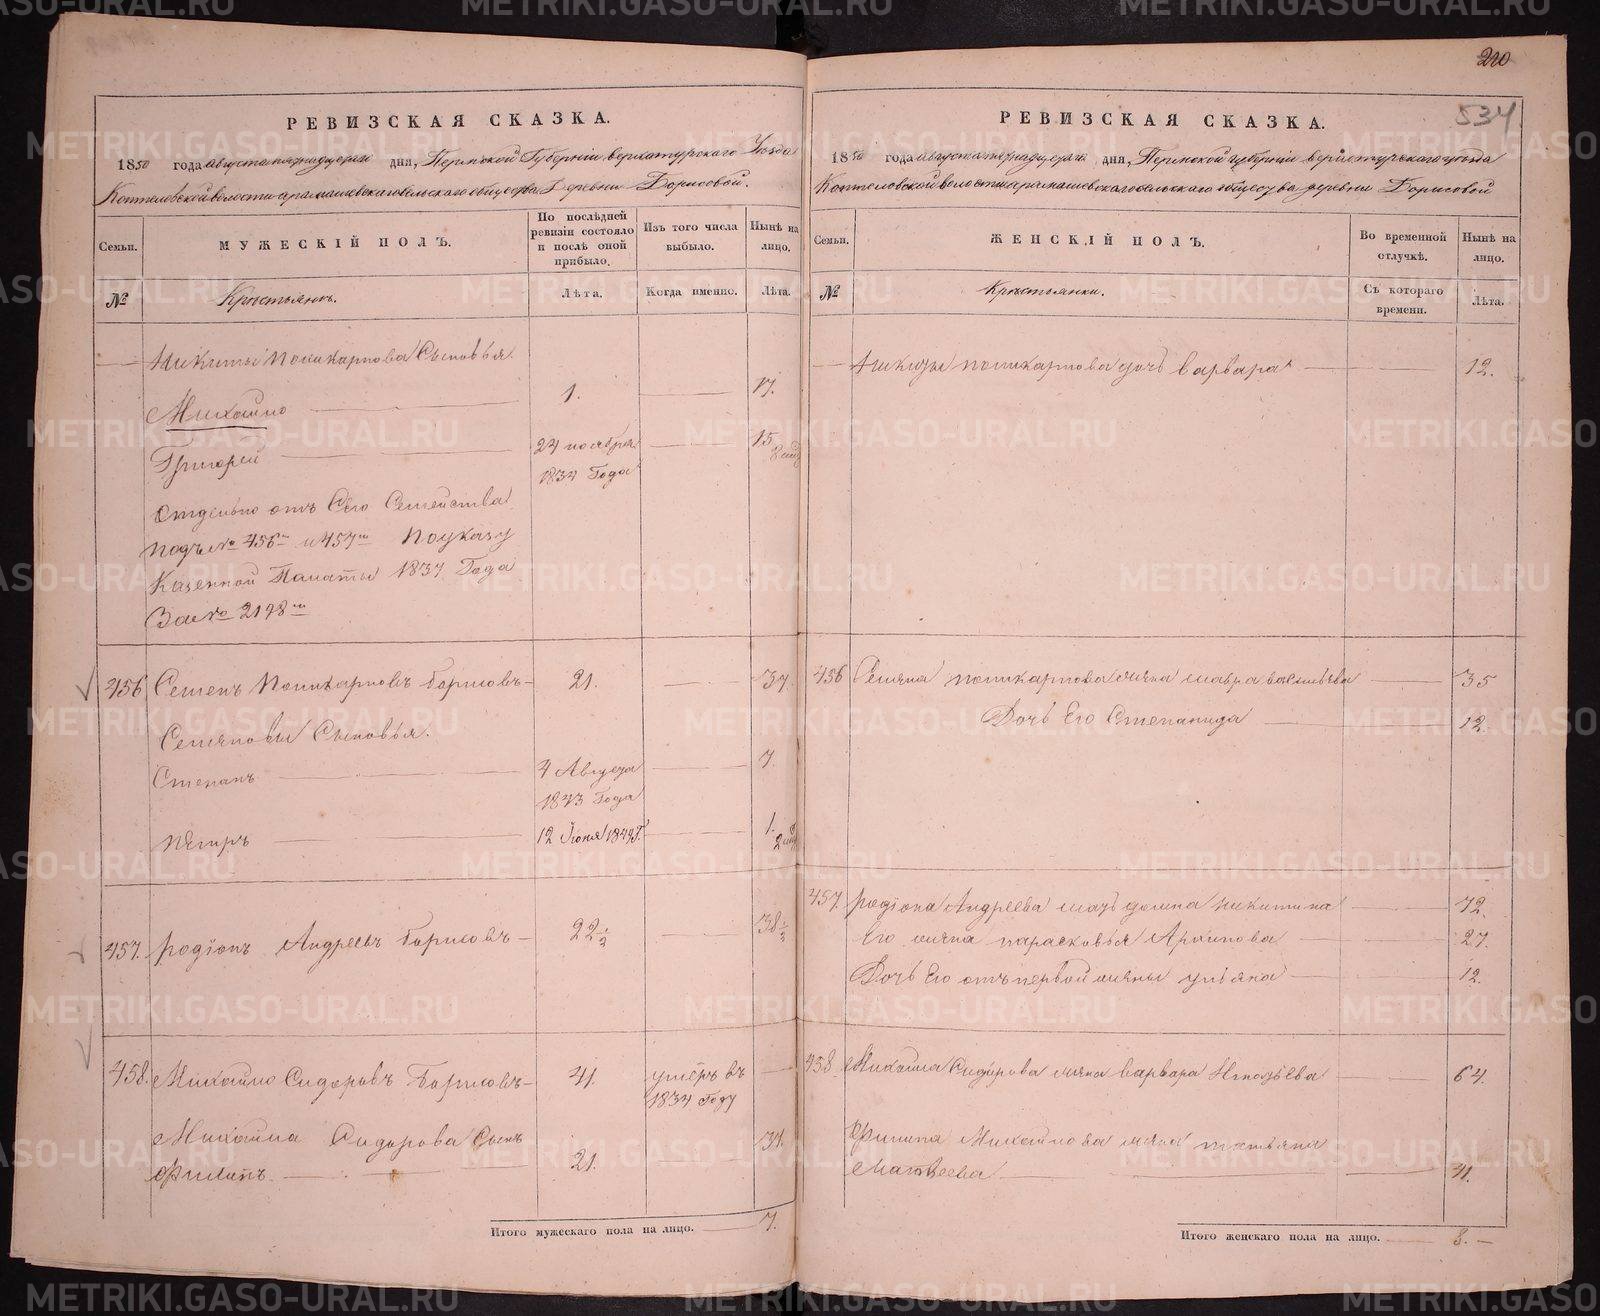 РЕВИЗСКАЯ СКАЗКА.
1850 года августа пятнадцатаго дня, Пермской Губерніи Верхотурскаго Уѣзда
Коптеловской волости арамашевскаго сельскаго общества Деревни Борисовой.
Семьи.
МУЖЕСКІЙ ПОЛЪ.
По послѣдней ревизіи состояло и послѣ оной прибыло.
Изъ того числа выбыло.
Нынѣ на лицо.
№
Крестьянъ.
Лѣта.
Когда именно.
Лѣта.
Никиты Поликарпова Сыновья.
Михайло 1. 17.
Григорей 24 ноября 1834 Года 15
отдельно отъ Сего Семейства
подъ № 456 и 457 По указу
Казенной Палаты 1837 Года
За № 2198
456 Семенъ Поликарповъ Борисовъ 21. 37.
Семеновы Сыновья.
Степанъ 4 Августа 1843 Года 7.
Петръ 12 Июня 1849 Г. 1.
457. Родіонъ Андреевъ Борисовъ 22½ 38½
458. Михайло Сидоровъ Борисовъ 41. умеръ въ 1834 Году
Михайла Сидорова Сынъ
Филипъ. 21. 37.
Итого мужескаго пола на лицо. 7.
220
534
РЕВИЗСКАЯ СКАЗКА.
1850 года августа пятнадцатаго дня, Пермской губерніи верхотурскаго уѣзда
Коптеловской волости арамашевскаго сельскаго общества деревни Борисовой
Семьи.
ЖЕНСКІЙ ПОЛЪ.
Во временной отлучкѣ.
Нынѣ на лицо.
№
Крестьянки.
Съ котораго времени.
Лѣта.
Никиты поликарпова дочь Варвара 12.
456 Семена поликарпова жена мавра васильева 35
Дочь Его Степанида 12.
457. Родіона Андреева мать домна никитина 72.
Его жена парасковья Архипова 27.
Дочь Его отъ первой жены ульяна 12.
458. Михайла Сидорова жена Варвара Игнатьева 64.
Филипа Михайлова жена татьяна
Матвеева 41.
Итого женскаго пола на лицо. 8.
METRIKI.GASO-URAL.RU